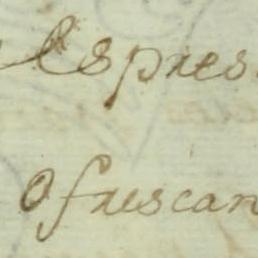 les pres
ofrescan